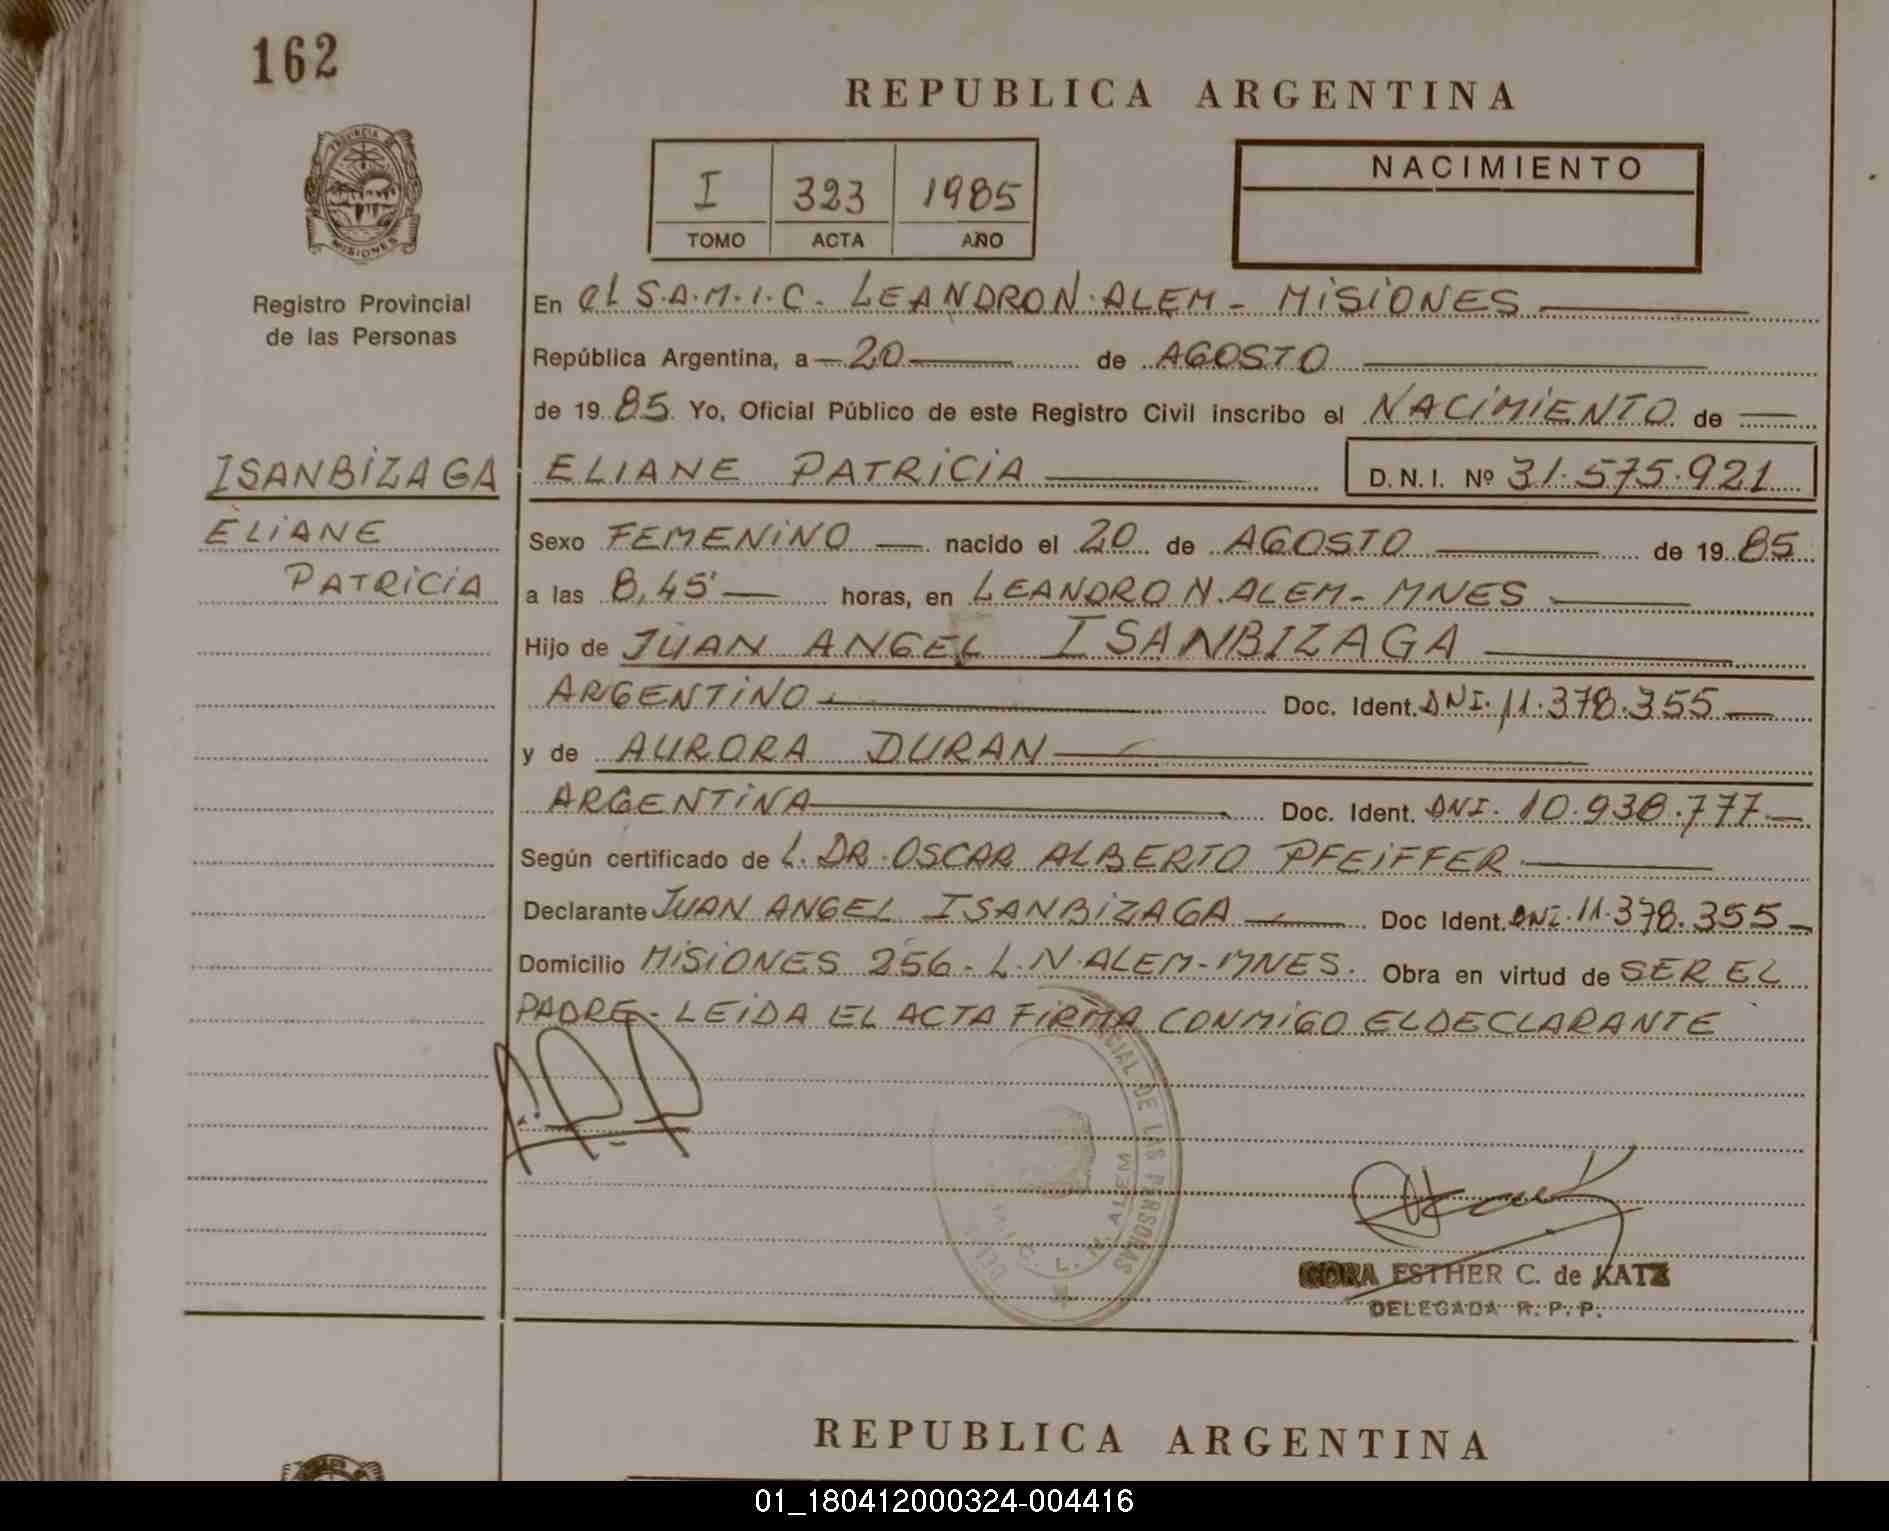 162
REPUBLICA ARGENTINA
PROVINCIA DE
MISIONES
I 323 1985
TOMO ACTA AÑO
NACIMIENTO
Registro Provincial
de las Personas
En el S.A.M.I.C. LEANDRO N. ALEM - MISIONES
República Argentina, a 20 de AGOSTO
de 19 85 Yo, Oficial Público de este Registro Civil inscribo el NACIMIENTO de
ISANBIZAGA
ELIANE PATRICIA D.N.I. Nº 31.575.921
ELIANE
PATRICIA
Sexo FEMENINO nacido el 20 de AGOSTO de 19 85
a las 8,45' horas, en LEANDRO N. ALEM - MNES
Hijo de JUAN ANGEL ISANBIZAGA
ARGENTINO Doc. Ident. DNI. 11.378.355
y de AURORA DURAN
ARGENTINA Doc. Ident. DNI. 10.938.777
Según certificado de L. DR. OSCAR ALBERTO PFEIFFER
Declarante JUAN ANGEL ISANBIZAGA Doc Ident. DNI. 11.378.355
Domicilio MISIONES 256 - L.N. ALEM - MNES. Obra en virtud de SER EL
PADRE - LEIDA EL ACTA FIRMA CONMIGO EL DECLARANTE
CIAL DE LAS PERSONAS
L. N. ALEM
ESTHER C. de KATZ
DELEGADA R.P.P.
REPUBLICA ARGENTINA
01_180412000324-004416